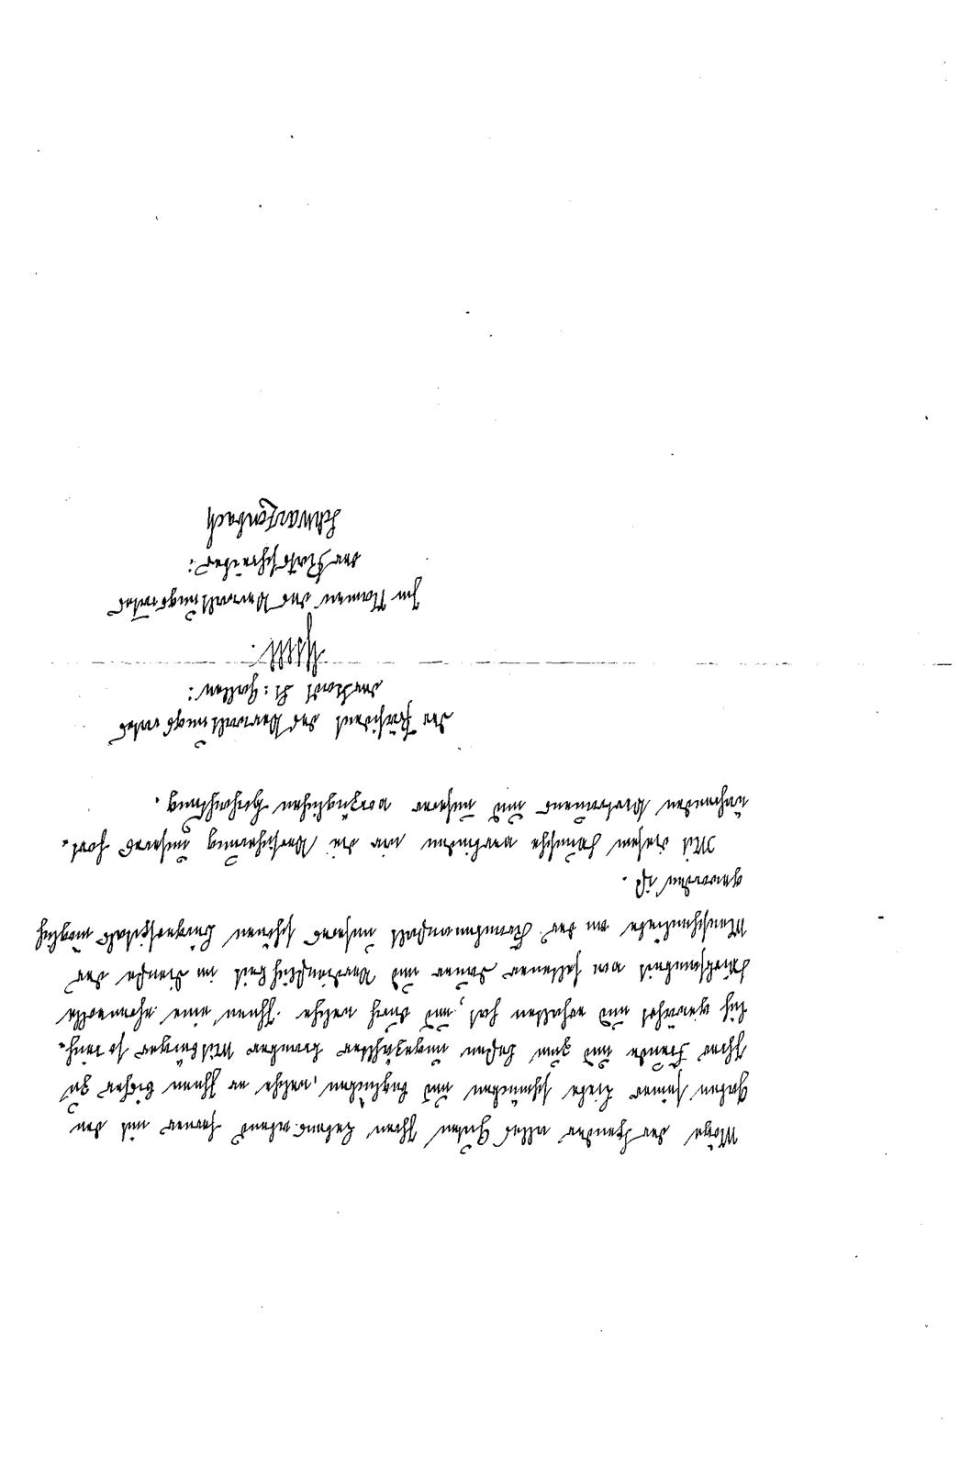 Möge der Spender alles Guten Ihren Lebensabend ferner mit den
Gaben seiner Liebe schmücken und beglücken, welche er Ihnen bisher zu
Ihrer Freude und zum besten ungezählter kranker Mitbürger so reich-
lich gewährt und erhalten hat, und durch welche Ihnen eine ehrenvolle
Wirksamkeit von seltener Dauer und Verdienstlichkeit im Dienste der
Menschenliebe an der Krankenanstalt unseres schönen Bürgerspitals möglich
geworden ist.
Mit diesem Wunsche verbinden wir die Versicherung unseres fort-
währenden Vertrauens und unserer vorzüglichen Hochachtung.
Der Präsident des Verwaltungsrates
der Stadt St: Gallen:
Im Namen des Verwaltungsrates
der Ratsschreiber:
Schwarzenbach